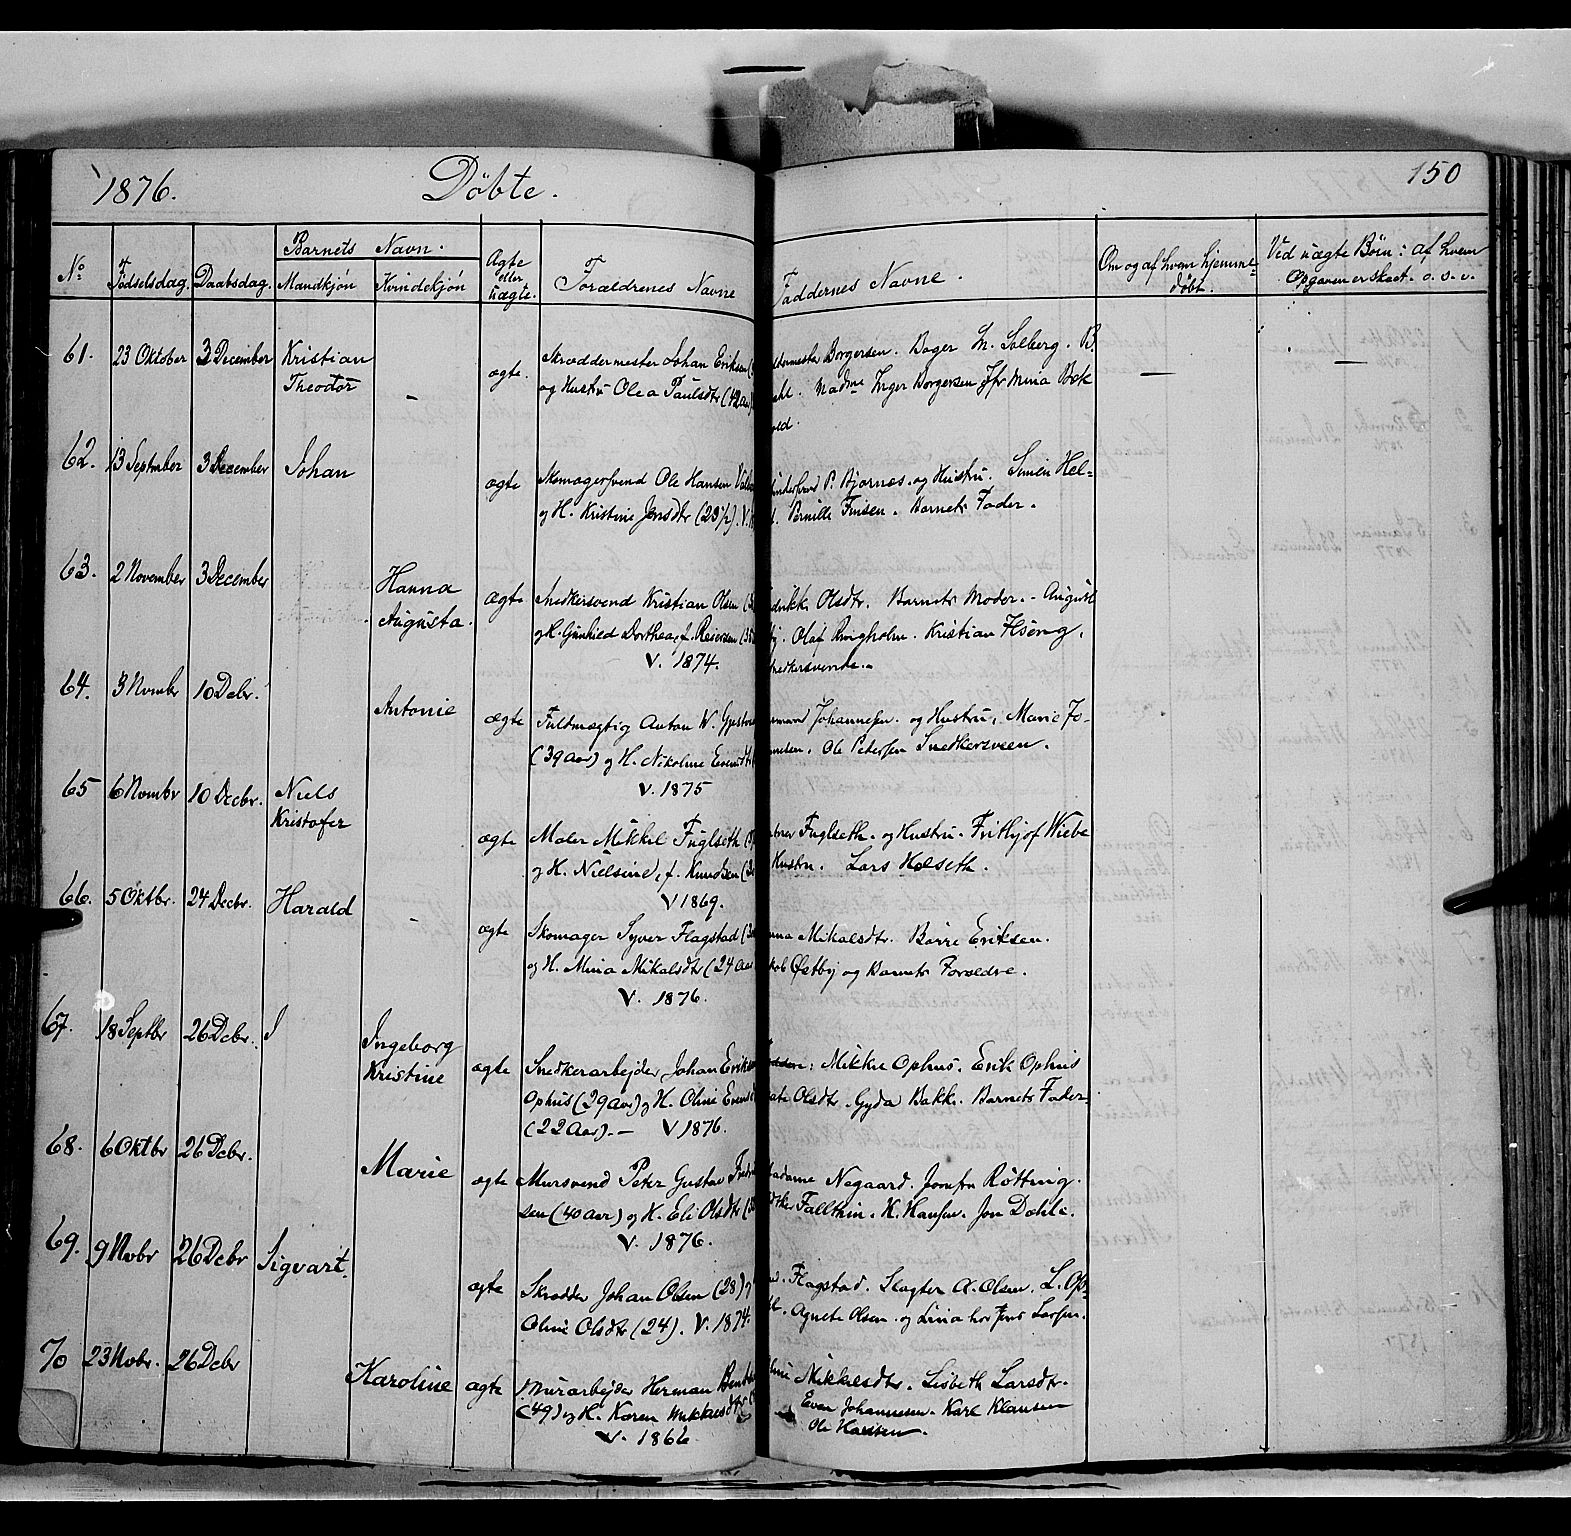 1876.
Döbte.
150
No
Födselsdag.
Daabsdag.
Barnets Navn.
Mandkjön
Kvindekjön
Ægte
eller
uægte.
Forældrenes Navne
Faddernes Navne.
Om og af hvem hjemme-
döbt.
Ved uægte Börn: af hvem
Opgaven er skeet. o. s. v.
61. 23 Oktober 3 December Kristian
Theodor
-
ægte.
Skræddermester Johan Eriksen
og Hustru Olea Paulsdtr (42 Aar)
Borgersen. Bager M. Solberg. B.
Madme Inger Borgersen Jfr Mina Bæk
—
—
62. 13 September 3 December Johan
ægte
Skomagersvend Ole Hansen
og H. Kristine Jensdtr (23½). V.
P. Bjørnes. og Hustru. Simen Hel=
Pernille Finsen. Barnets Fader.
63. 2 November 3 December
Hanna
Augusta.
ægte
Snedkersvend Kristian Olsen
og H. Gunhild Dorthea, f. Reiersen
V. 1874.
Olsdtr. Barnets Moder. - August
Olaf Ringholm. Kristian Hseng,
64. 3 Novembr 10 Debr.
Antonie
ægte
Fuldmægtig Anton W.
(39 Aar) og H. Nikoline Evensdtr
V. 1875
Johannesen. og Hustru, Marie Jo-
Ole Petersen Snedkersveen.
65 6 Novmbr 10 Decbr. Niels
Kristofer
ægte
Maler Mikkel Fuglseth
og H. Nielsine, f. Knudsen
V 1869.
Fuglseth. og Hustru. Frithjof Wiebe
Hustru. Lars Holseth.
66. 5 Oktbr. 24 Decbr. Harald
-
ægte
Skomager Syver Flagstad
og H. Mina Mikalsdtr (24 Aar
V. 1876.
Mikalsdtr. Börre Eriksen.
Østby og Barnets Forældre.
67. 18 Septbr 26 Debr.
Ingeborg
Kristine
ægte
Snedkerarbejder Johan
Ophus (29 Aar) og H. Oline
(22 Aar). — V 1876.
Mikkel Ophus. Erik Ophus
Olsdtr. Gyda Bakk. Barnets Fader.
68. 6 Oktbr 26 Debr.
Marie
ægte
Mursvend Peter Gustav
sen (40 Aar) og H. Eli Olsdtr
V. 1876.
Madame Negaard. Jomfru Rötting.
Fallthin. K. Hansen. Jon Dahle.
69. 9 Novbr 26 Debr Sigvart.
ægte
Skrædder Johan Olsen (28) og
Oline Olsdtr (24). V. 1874.
Flagstad. Slagter A. Olsen. L. Op-
Agnete Olsen. og Lina hos Jens Larsen.
70 23 Novbr. 26 Debr
Karoline
ægte
Murarbejder Herman
(49) og H. Karen Mikkelsdtr
V. 1866
Mikkelsdtr. Lisbeth Larsdtr.
Even Johannesen. Karl Klausen
Ole Hansen.